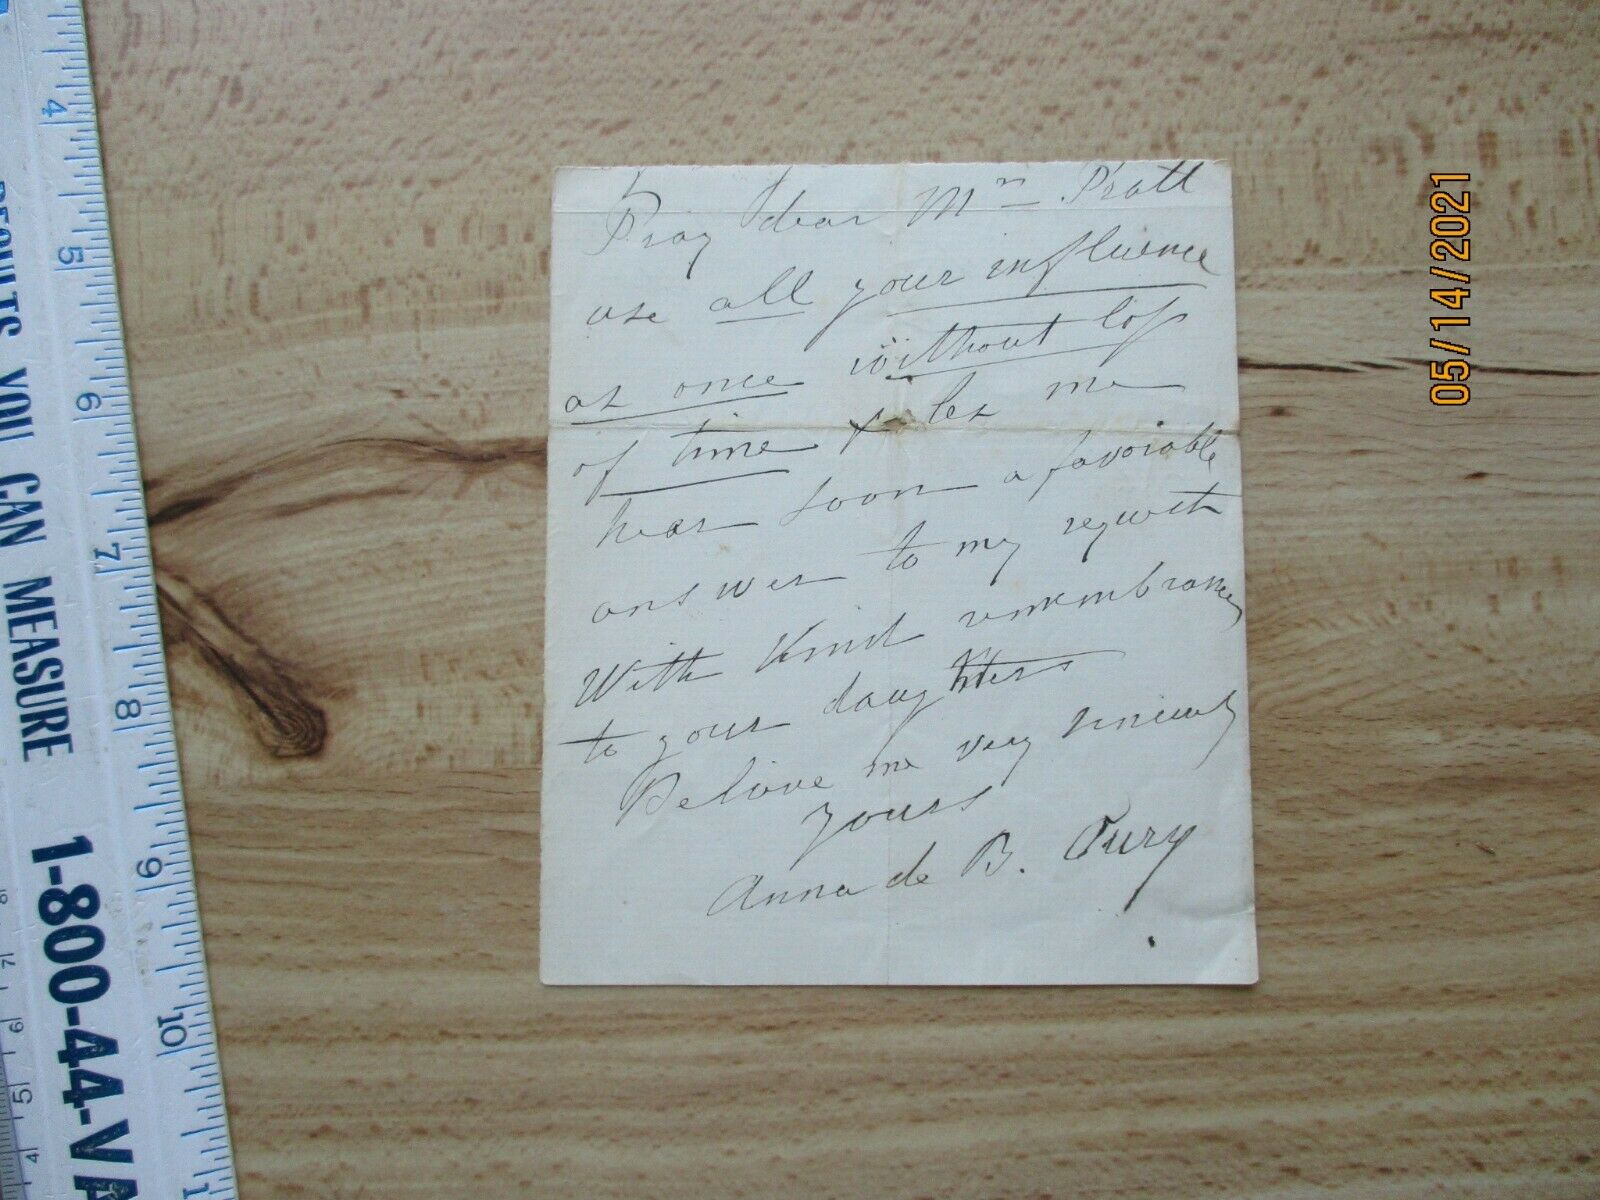 Pray dear Mrs Pratt
use all your influence
at once without loss
of time & let me
hear soon a favorable
answer to my request
With kind remembrances
to your daughters
Believe me very sincerely
yours
Anna de B. Oury
05/14/2021
RESULTS YOU CAN MEASURE
1-800-44-VA
4
5
6
7
8
9
10
1
8
7
6
5
4